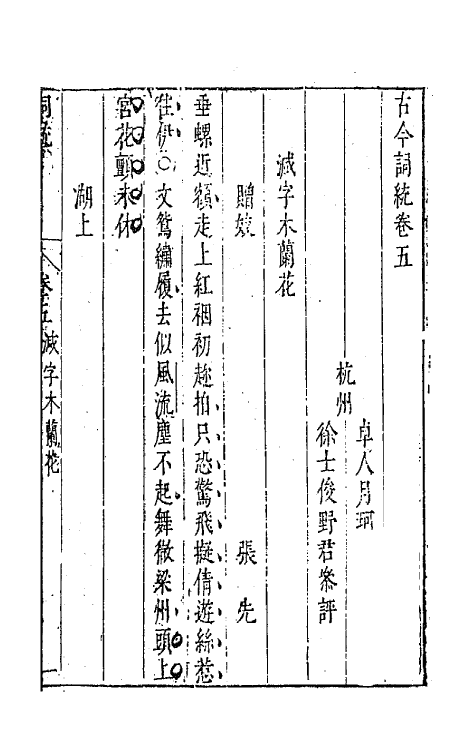 古今詞統卷五
杭州
卓人月珂
徐士俊野君叅評
減字木蘭花
贈妓 張先
垂螺近額走上紅裀初趂拍只恐驚飛擬倩遊絲惹
住伊○文鴛繡履去似風流塵不起舞徹梁州頭上
宮花顫未休
湖上
詞統 卷五 減字木蘭花